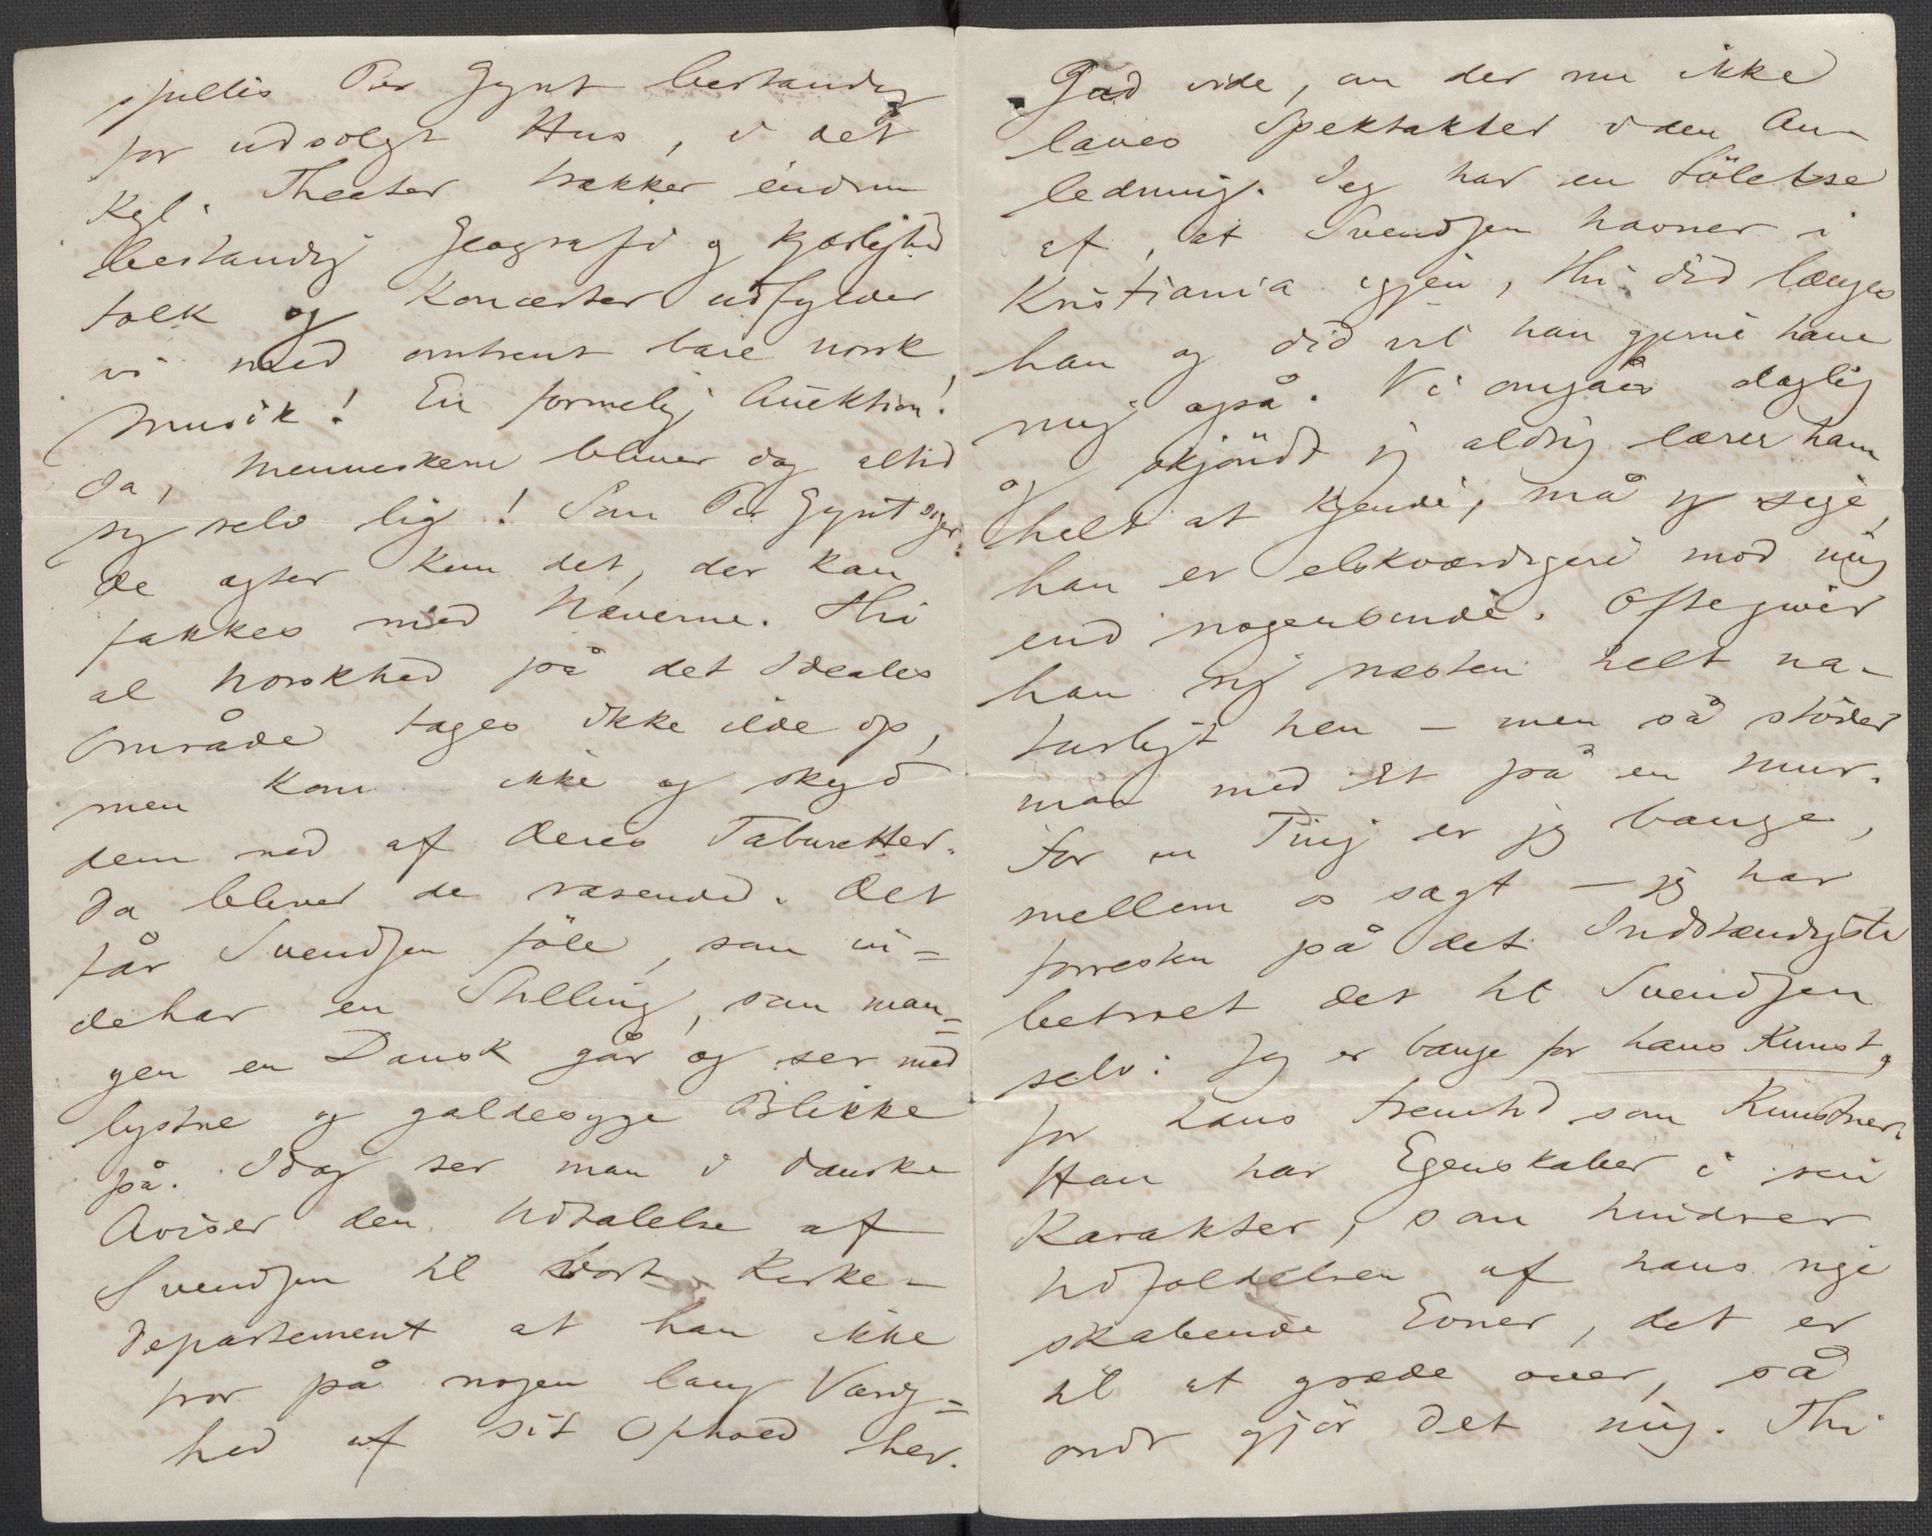 spilles Per Gynt bestandig
for udsolgt Hus, i det
Kgl. Theater trækker endnu
bestandig Geografi og Kjærlighed
folk og Koncerter udfylder
vi med omtrent bare norsk
Musik! En formelig Auktion!
Ja, Menneskene bliver dog altid
sig selv lig! Som Per Gynt siger:
de agter kun det, der kan
takkes med Næverne. Thi
al Norskhed på det Ideales
Område tages ikke ilde op,
men kom ikke og skyd
dem ned af deres Taburetter.
Da bliver de rasende. Det
får Svendsen föle, som in=
dehar en Stilling, som man=
gen en Dansk går og ser med
lystne og galdesyge Blikke
på. Idag ser man i danske
Aviser den Udtalelse af
Svendsen til vort Kirke-
departement at han ikke
tror på nogen lang Varig=
hed af sit Ophold her.
Gad vide, om der nu ikke
laves Spektakler i den An-
ledning. Jeg har en Fölelse
af, at Svendsen havner i
Kristiania igjen, thi did længes
han og did vil han gjerne have
mig også. Vi omgåes daglig
og skjöndt jeg aldrig lærer ham
helt at kjende, må jeg sige,
han er elskværdigere mod mig
end nogensinde. Ofte giver
han sig næsten helt na-
turligt hen – men så stöder
man med Et på en Mur.
For en Ting er jeg bange,
mellem os sagt – jeg har
forresten på det Indstændigste
betroet det til Svendsen
selv: Jeg er bange for hans Kunst,
for hans Fremtid som Kunstner.
Han har Egenskaber i sin
Karakter, som hindrer
Udfoldelsen af hans rige
skabende Evner, det er
til at græde over, så
ondt gjör det mig. Thi